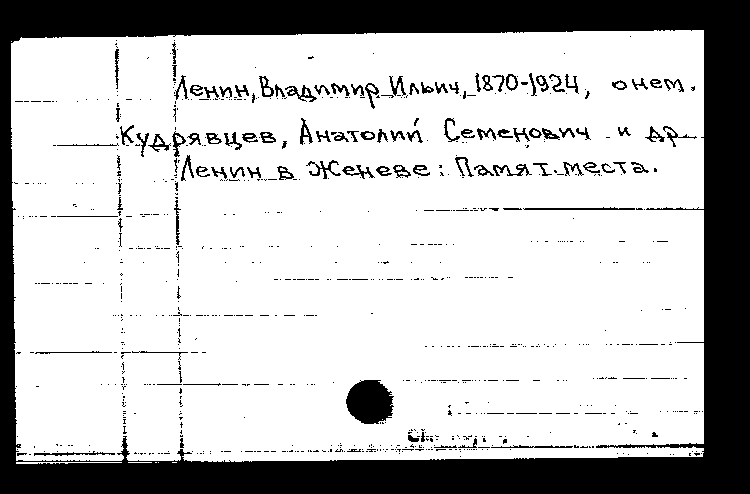 Ленин, Владимир Ильич, 1870-1924, о нем.
Кудрявцев, Анатолий Семенович и др.
Ленин в Женеве: Памят. места.